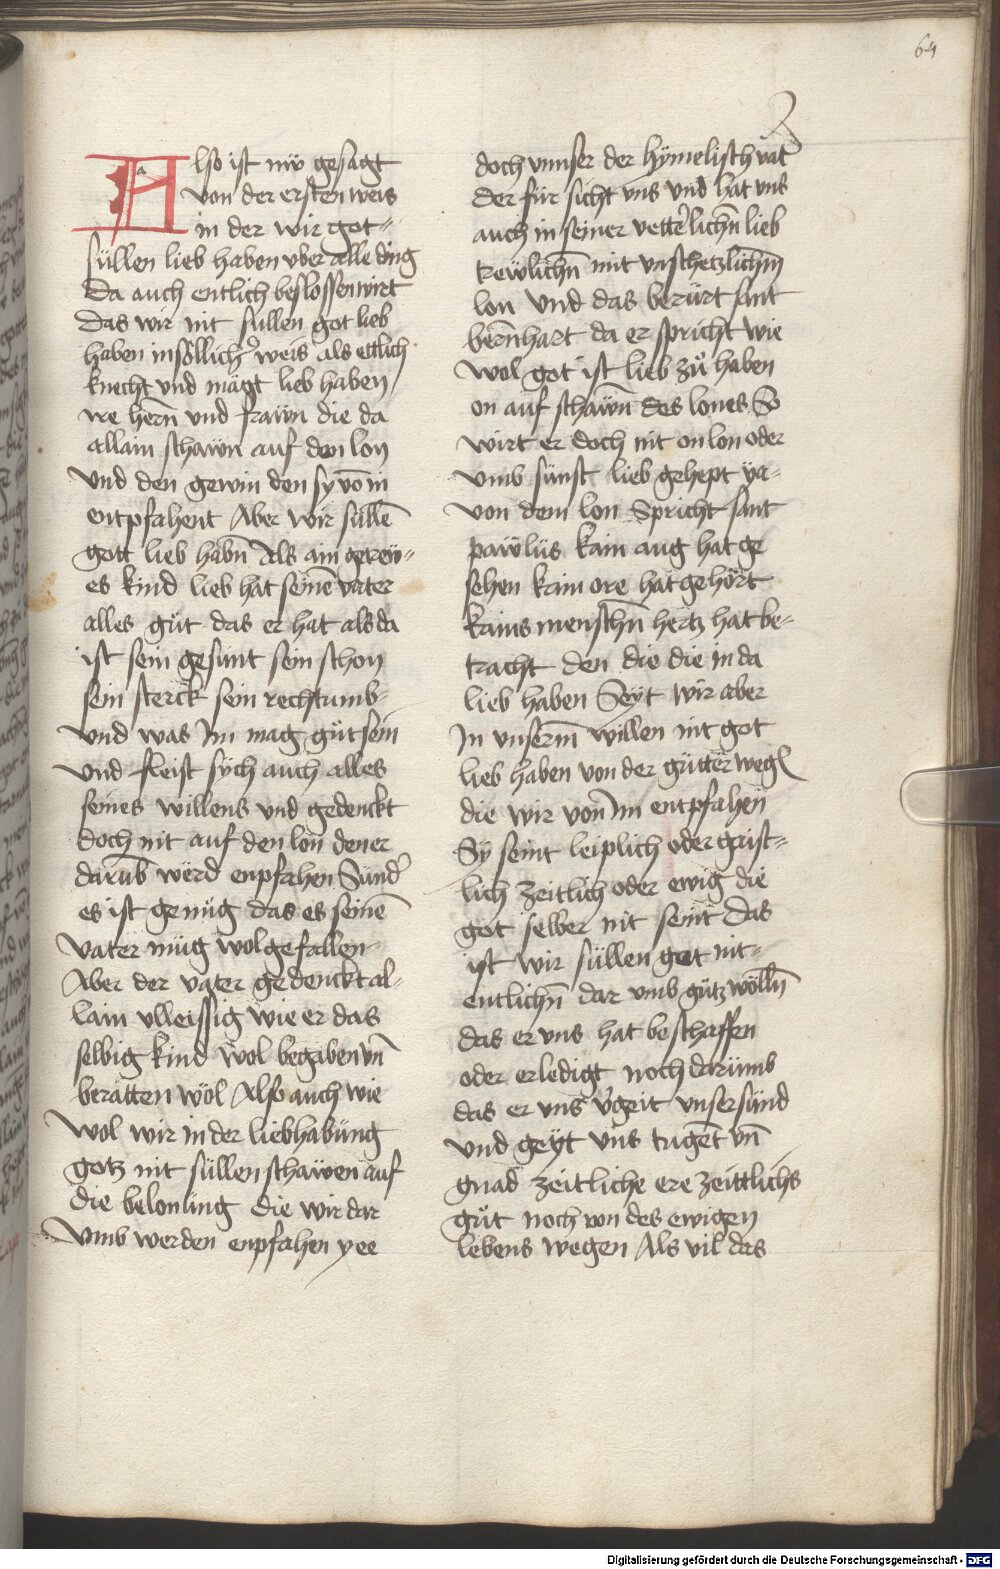 64
Also ist nw̄ gesagt
von der ersten weis
in der wir got-
süllen lieb haben vber alle ding
Da auch entlich beslossen wirt
Das wir nit süllen got lieb
haben in söllicher weis als ettlich
knecht vnd mägt lieb haben /
re hern̄ vnd frawn die da
allain schawn auf den lon
vnd den gewin den sy vō in
entpfahent Aber wir süllē
gott lieb habn̄ Als ain getrew-
es kind lieb hat seinē vater
alles güt das er hat als da
ist sein gesunt sein schon
sein sterck sein rechtumb-
vnd was Im mag gůt sein
vnd fleist sych auch alles
seines willens vnd gedenckt
doch nit auf den lon dener
darūb werd enpfahen Sunder
es ist genüg das es seinē
vater müg wolgefallen-
Aber der vater gedenckt al-
lain vlleissig wie er das
selbig kind wol begaben vn̄
beratten wöl Also auch wie
wol wir in der liebhabüng
gotz nit süllen schawen auf
die belonüng die wir dar
vmb werden enpfahen yee
doch vnnser der hymelisch vat
der für sicht vns vnd hat vns
auch in seiner vetterlichn̄ lieb
trewlichn̄ mit vnschetzlichm̄
lon vnd das berürt sant
bern̄hart da er spricht wie
wol got ist lieb zů haben
on auf schawn̄ des lones So
wirt er doch nit on lon oder
vmb sünst lieb gehept ya-
von dem lon Spricht sant
pawlus kain aug hat ge
sehen kain ore hat gehört
kains menschn̄ hertz hat be-
tracht den die die in da
lieb haben Seyt wir aber
In vnserm̄ willen nit got
lieb haben von der gütter wegn
die wir von Im entpfahen
Sy seint leiplich oder gaist-
lich zeitlich oder ewig die
got selber nit seint das
ist wir süllen got nit-
entlichn̄ dar vmb gütz wölln̄
das er vns hat beschaffen
oder erledigt noch darümb
das er vns v'geit vnser sünd
vnd geyt vns tugēt vn̄
gnad zeitliche ere zeittlichs
gůt noch von des ewigen
lebens wegen Als vil das
Digitalisierung gefördert durch die Deutsche Forschungsgemeinschaft - DFG